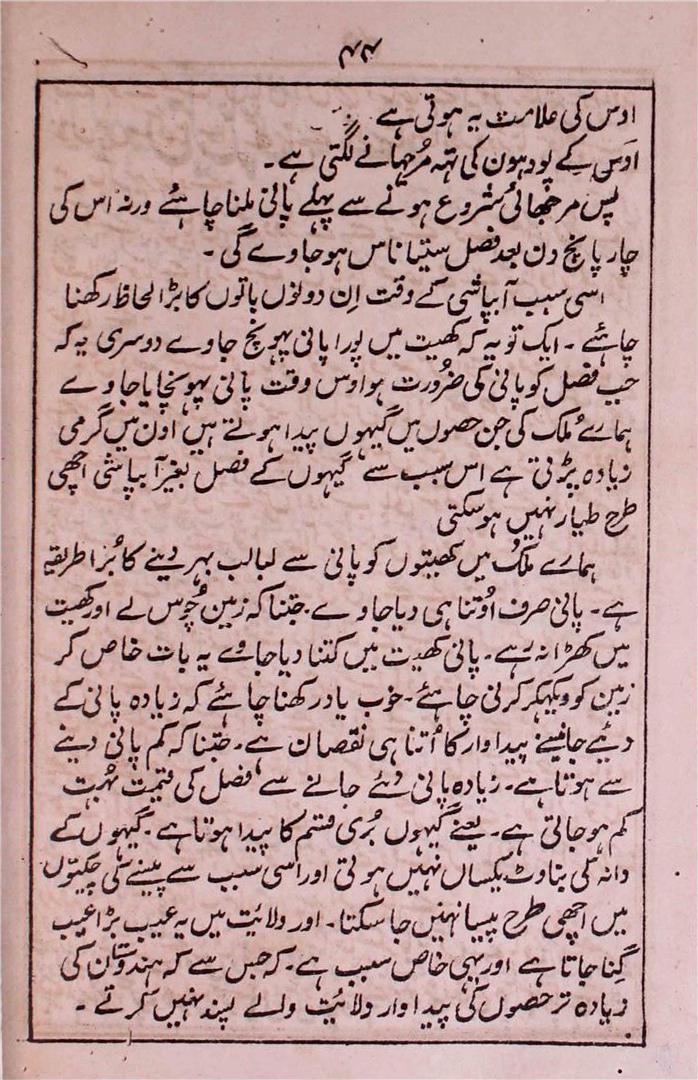 ۴۴
اوس کی علامت یہ ہوتی ہے
اوس کے پودہون کی تہہ مُرجہانے لگتی ہے۔
پس مرجھائی شروع ہونے سے پہلے پانی ملنا چاہئے ورنہ اس کی
چار پانچ دن بعد فصل ستیاناس ہو جاوے گی۔
اسی سبب آبپاشی کے وقت اِن دونوں باتوں کا بڑا لحاظ رکھنا
چاہئے۔ ایک تو یہ کہ کھیت میں پورا پانی پہونچ جاوے دوسری یہ کہ
جب فصل کو پانی کی ضرورت ہو اوس وقت پانی پہونچایا جاوے
ہمارے مُلک کی جن حصوں میں گیہوں پیدا ہوتے ہیں اون میں گرمی
زیادہ پڑتی ہے اس سبب سے گیہوں کے فصل بغیر آبپاشی اچھی
طرح طیار نہیں ہو سکتی
ہمارے ملک میں کھیتوں کو پانی سے لبالب بہر دینے کا بُرا طریقہ
ہے۔ پانی صرف اُوتنا ہی دیا جاوے جتنا کہ زمین چُوس لے اور کھیت
میں کھڑا نہ رہے۔ پانی کھیت میں کتنا دیا جاوے یہ بات خاص کر
زمین کو دیکہکر کرنی چاہئے۔ خوب یاد رکھنا چاہئے کہ زیادہ پانی کے
دئیے جانیسے پیداوار کا اُتنا ہی نقصان ہے۔ جتنا کہ کم پانی دینے
سے ہوتا ہے۔ زیادہ پانی دئے جانے سے فصل کی قیمت بہت
کم ہو جاتی ہے۔ یعنے گیہوں بُری قسم کا پیدا ہوتا ہے۔ گیہوں کے
دانہ کی بناوٹ یکساں نہیں ہوتی اور اسی سبب سے پیسنے کی چکیوں
میں اچھی طرح پیسا نہیں جا سکتا۔ اور ولائیت میں یہ عیب بڑا عیب
گِنا جاتا ہے اور یہی خاص سبب ہے۔ کہ جس سے کہ ہندوستان کی
زیادہ تر حصوں کی پیداوار ولائیت والے پسند نہیں کرتے۔